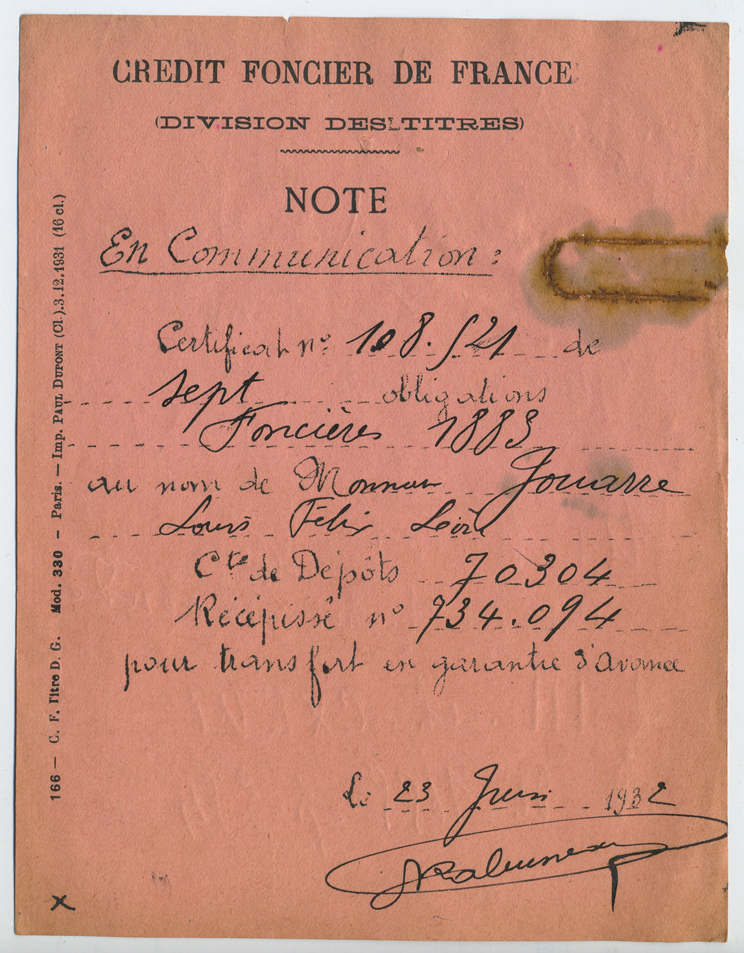 CREDIT FONCIER DE FRANCE
(DIVISION DES TITRES)
NOTE
En Communication :
Certificat n° 108.521 de
sept obligations
Foncières 1883
au nom de Monsieur Jouarre
Louis Félix Léon
Cte de Dépôts 70304
Récépissé n° 734.094
pour transfert en garantie d'avance
le 23 Juin 1932
X
166 — C. F. Titre D. G. Mod. 330 — Paris. — Imp. PAUL DUPONT (Cl.).3.12.1931 (16 cl.)